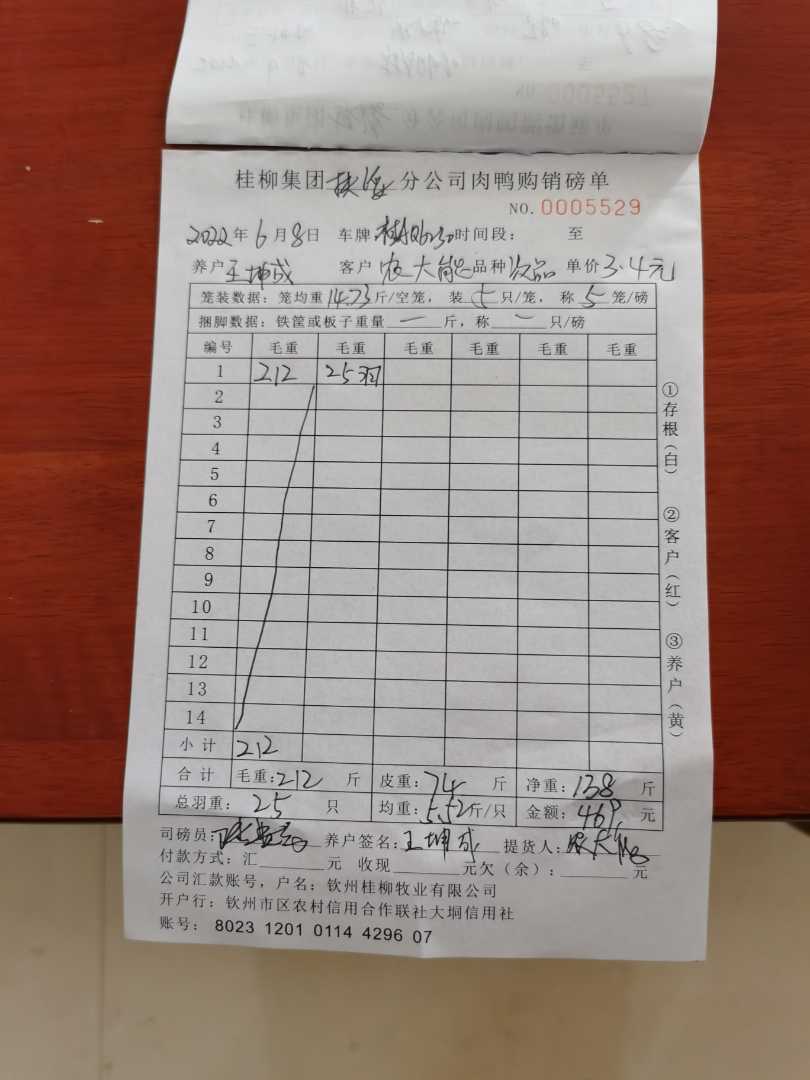 桂柳集团 分公司肉鸭购销磅单
NO. 0005529
2022年6月8日 车牌: 时间段: 至
养户 王坤成 客户 农大能 品种 次品 单价 3.4元
笼装数据: 笼均重 14.73 斤/空笼, 装 5 只/笼, 称 5 笼/磅
捆脚数据: 铁筐或板子重量 一 斤, 称 一 只/磅
编号 毛重 毛重 毛重 毛重 毛重 毛重
1 212 25羽
2
3
4
5
6
7
8
9
10
11
12
13
14
小计 212
合计 毛重: 212 斤 皮重: 74 斤 净重: 138 斤
总羽重: 25 只 均重: 5.52 斤/只 金额: 469 元
司磅员: 养户签名: 王坤成 提货人: 农大能
付款方式: 汇 元 收现 元欠(余): 元
公司汇款账号, 户名: 钦州桂柳牧业有限公司
开户行: 钦州市区农村信用合作联社大垌信用社
账号: 8023 1201 0114 4296 07
①存根(白) ②客户(红) ③养户(黄)